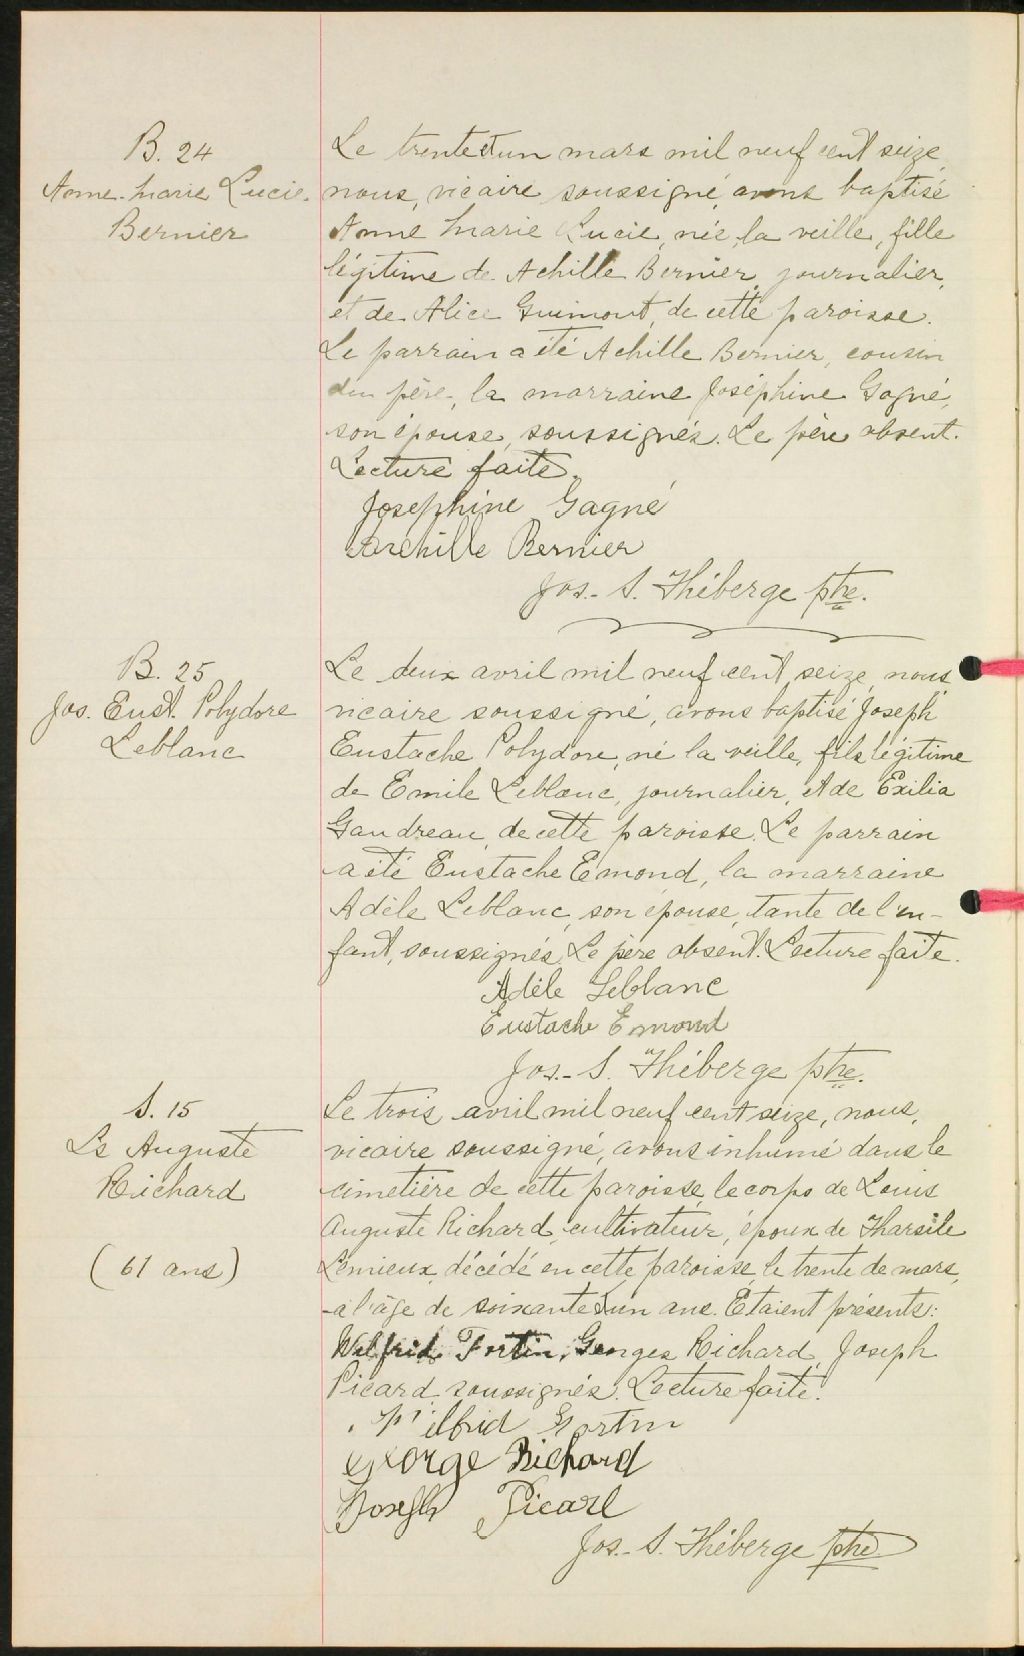 B. 24
Anne-Marie Lucie
Bernier
Le trente et un mars mil neuf cent seize,
nous, vicaire soussigné, avons baptisé
Anne Marie Lucie, née la veille, fille
légitime de Achille Bernier, journalier,
et de Alice Guimont, de cette paroisse.
Le parrain a été Achille Bernier, cousin
du père, la marraine Joséphine Gagné,
son épouse, soussignés. Le père absent.
Lecture faite.
Josephine Gagné
Archille Bernier
Jos.-S. Théberge ptre.
B. 25
Jos. Eust. Polydore
Leblanc
Le deux avril mil neuf cent seize, nous,
vicaire soussigné, avons baptisé Joseph
Eustache Polydore, né la veille, fils légitime
de Emile Leblanc, journalier, et de Exilia
Gaudreau, de cette paroisse. Le parrain
a été Eustache Emond, la marraine
Adèle Leblanc, son épouse, tante de l'en-
fant, soussignés. Le père absent. Lecture faite.
Adèle Leblanc
Eustache Emond
Jos.-S. Théberge ptre.
S. 15
Ls Auguste
Richard
(61 ans)
Le trois avril mil neuf cent seize, nous,
vicaire soussigné, avons inhumé dans le
cimetière de cette paroisse, le corps de Louis
Auguste Richard, cultivateur, époux de Tharsile
Lemieux, décédé en cette paroisse, le trente de mars,
à l'âge de soixante et un ans. Etaient présents:
Wilfrid Fortin, Georges Richard, Joseph
Picard soussignés. Lecture faite.
Wilfrid Fortin
George Richard
Joseph Picard
Jos.-S. Théberge ptre